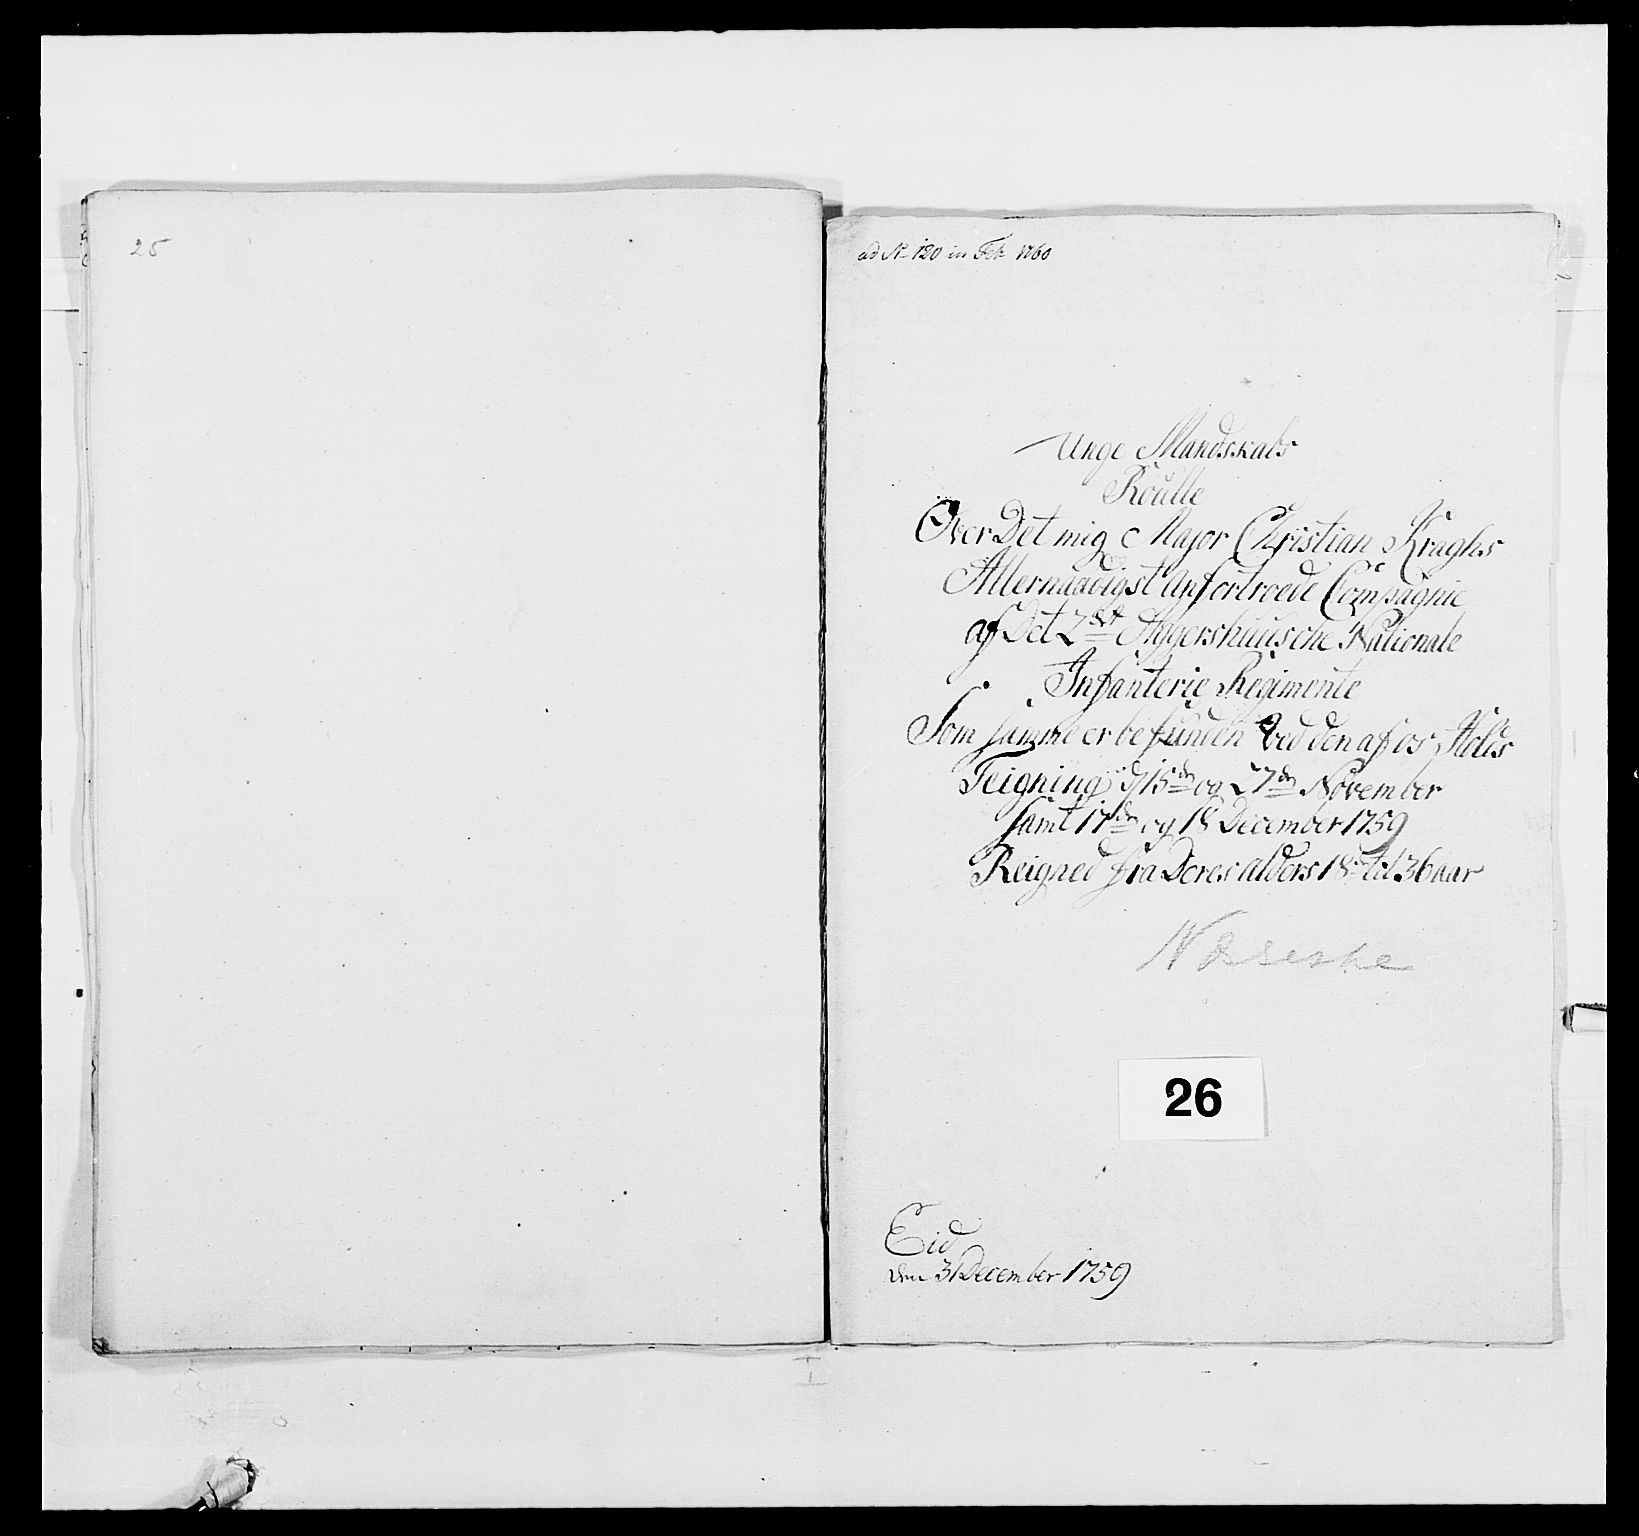 25
ad No 120 in Feb 1760
Unge Mandskabs
Roulle
Over Det mig Major Christian Kraghs
Allernaadigst anfortroede Compagnie
af Det 2det Aggershuusche Nationale
Infanterie Regimente
Som samme er befunden ved den af os Holds
Teigning d 15de og 27de November
samt 17de og 18 December 1759
Reigned fra Deres alders 18 til 36 aar
26
Eid
den 31 December 1759